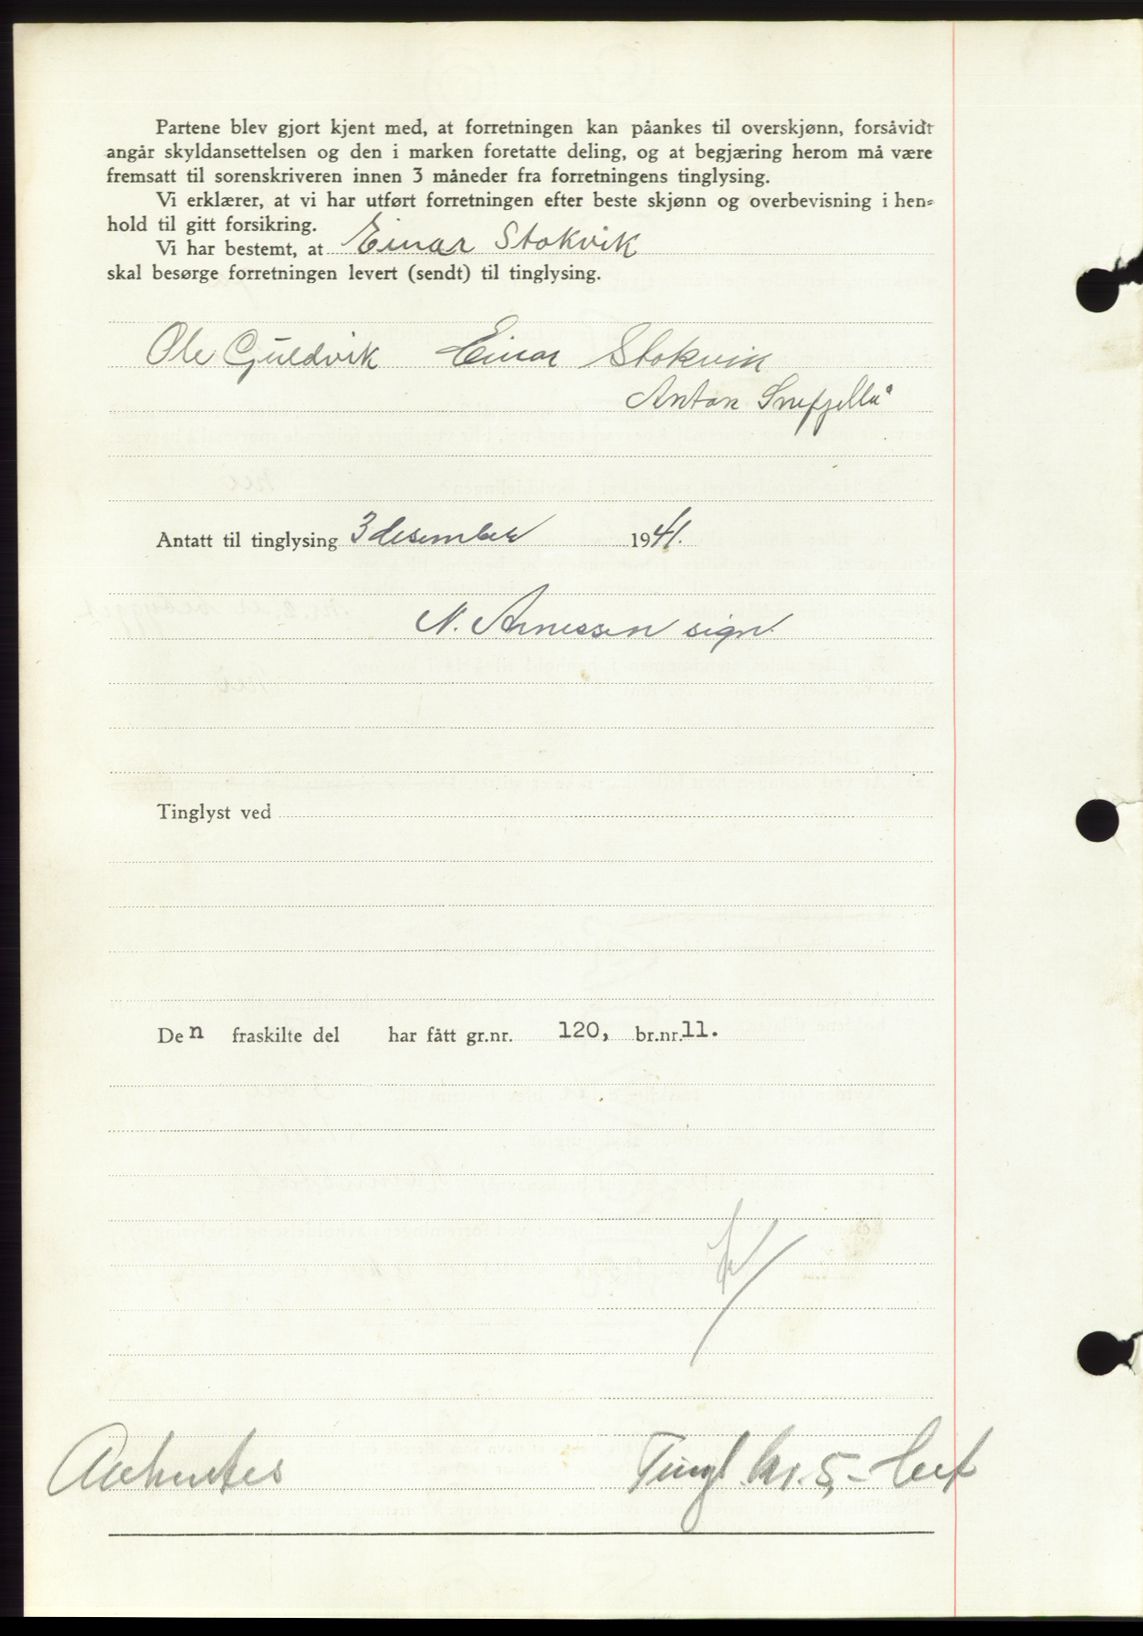 Partene blev gjort kjent med, at forretningen kan påankes til overskjønn, forsåvidt
angår skyldansettelsen og den i marken foretatte deling, og at begjæring herom må være
fremsatt til sorenskriveren innen 3 måneder fra forretningens tinglysing.
Vi erklærer, at vi har utført forretningen efter beste skjønn og overbevisning i hen=
hold til gitt forsikring.
Vi har bestemt, at Einar Stokvik
skal besørge forretningen levert (sendt) til tinglysing.
Ole Guldvik Einar Stokvik
Anton Snefjellå
Antatt til tinglysing 3 desember 1941.
N. Arnessen sign.
Tinglyst ved
Den fraskilte del har fått gr.nr. 120, br.nr.11.
Tingl kr. 5,-